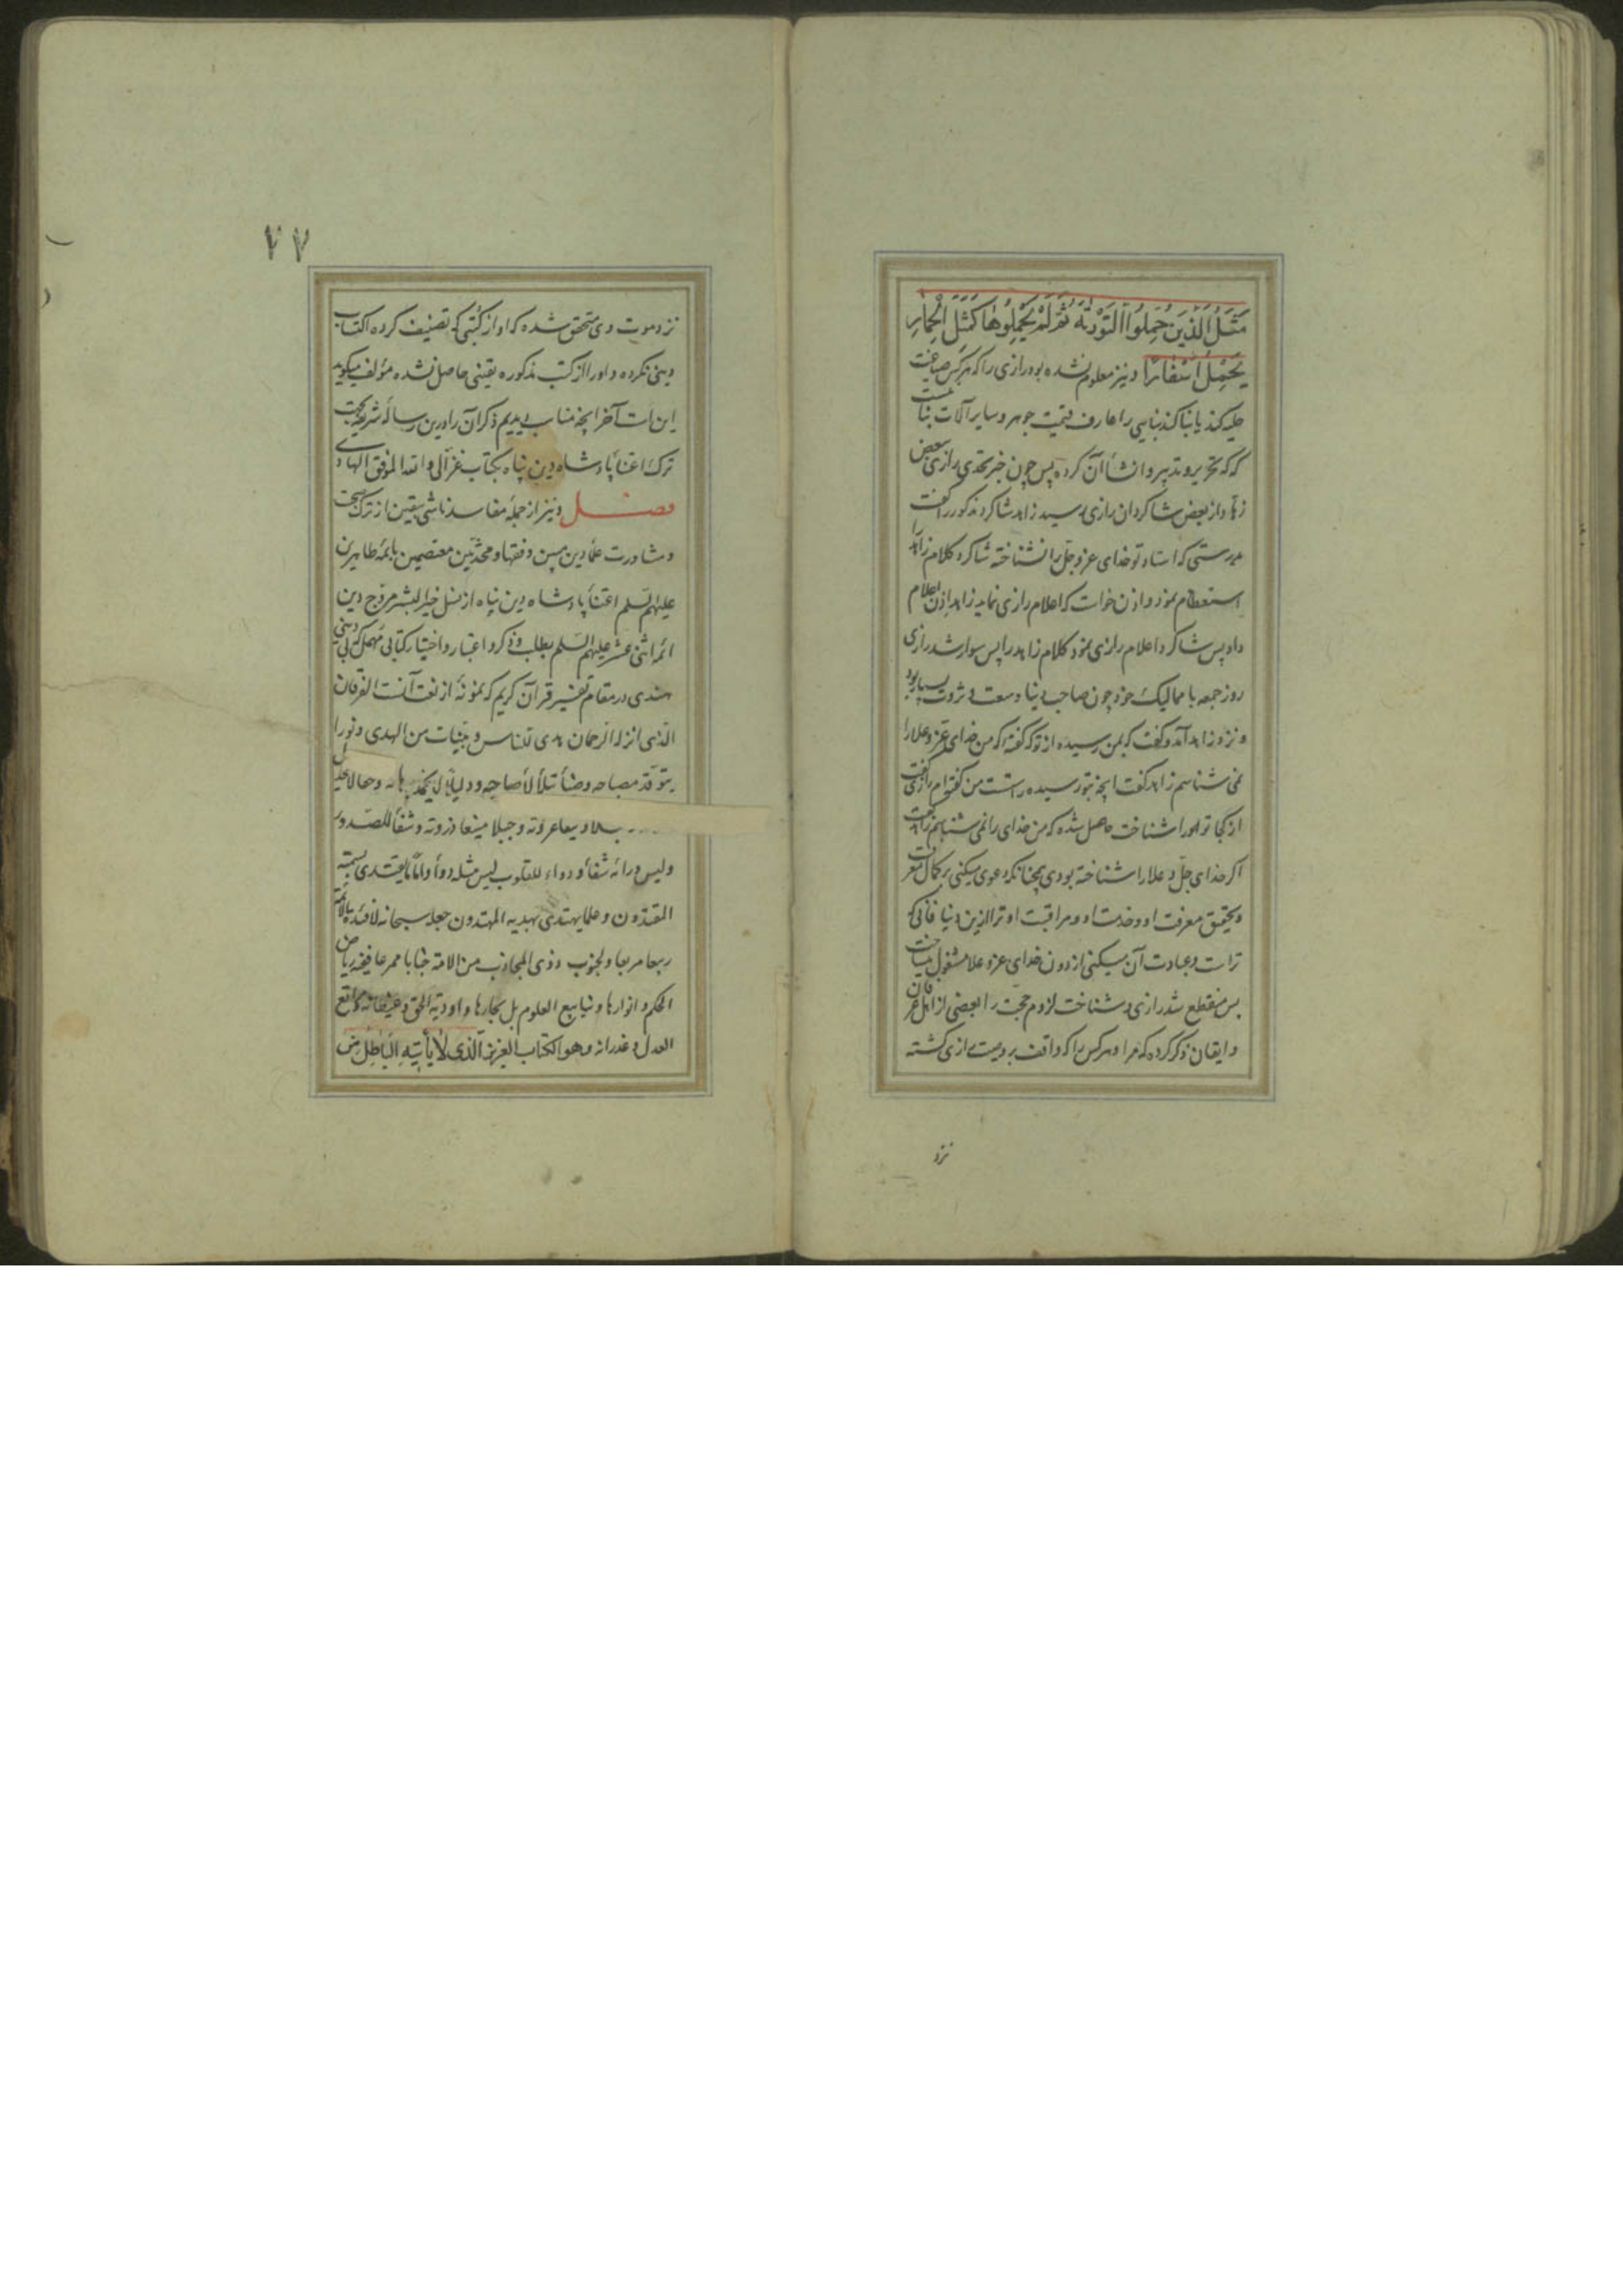 مَثَلُ الَّذِینَ حُمِّلُوا التَّوْرٰیةَ ثُمَّ لَمْ یَحْمِلُوهٰا کَمَثَلِ الْحِمٰارِ
یَحْمِلُ اَسْفٰارًا ونیز معلوم نشده بود رازی را که هرکس صیاغت
حلیه کند یا بنا کند بنایی را عارف قیمت جوهر و سایر آلات بنا
که که تحریر و تدبیر و انشأ آن کرده پس چون خبر تحدی رازی بعض
زهاد از بعض شاکردان رازی رسید زاهد شاکرد مذکور را گفت
بدرستی که استاد تو خدای عز وجل را نشناخته شاکرد کلام زاهد را
استعظام نمود و اذن خواست که اعلام رازی نماید زاهد اذن اعلام
داد پس شاکرد اعلام رازی نمود کلام زاهد را پس سوار شد رازی
روز جمعه با ممالیک خود چون صاحب دنیا و سعت و ثروت بسیار بود
و نزد زاهد آمد و گفت که بمن رسیده از تو که گفته که من خدای عز وعلا را
نمی شناسم زاهد گفت آنچه بتو رسیده راست من گفته‌ام رازی گفت
از کجا تو را شناخت حاصل شده که من خدای را نمی شناسم زاهد گفت
اگر خدای جل و علا را شناخته بودی همچنانکه دعوی میکنی بر کمال معرفت
و تحقیق معرفت او و خدمت او و مراقبت او ترا ازین دنیا فانی که
تراست و عبادت آن میکنی از دون خدای عز و علا مشغول میساخت
پس منقطع شد رازی و شناخت لزوم حجت را بعضی از اهل عرفان
و ایقان ذکر کرده که مرا و هرکس را که واقف بر وصیت رازی گشته
نزد
٧٧
نزد موت وی متحقق شده که او از کتبی که تصنیف کرده اکتساب
دینی نکرده و او را از کتب مذکوره یقینی حاصل نشده مؤلف میگوید
این است آخر آنچه مناسب دیدیم ذکر آن را درین رساله شریفه بجهت
ترک اعتنأ پادشاه دین پناه بکتاب غزالی والله الموفق الهادی
فصل ونیز از جمله مفاسد ناشی بیقین از ترک صحبت
و مشاورت علمأ دین مبین و فقها و محدثین معتصمین بائمه طاهرین
علیهم السلم اعتنأ پادشاه دین پناه از نسل خیر البشر مروج دین
ائمه اثنی عشر علیهم السلم بطلب و ذکر و اعتبار و اختیار کتابی مهمل که بی دینی
هندی در مقام تفسیر قرآن کریم که نمونهٔ از نعت آنست الفرقان
الذی انزله الرحمان هدی للناس و بینات من الهدی و نورا
یتوقد مصباحه وضئأ تتلألأ صباحه ودلیلا لا یخمد برهانه
وشفأ للصدور
ولیس ورائه شفأ و دواء للقلوب لیس مثله دوأ واماما یقتدی بسمته
المقتدون و علما یهتدی بهدیه المهتدون جعله سبحانه لافئدة الائمة
ریاض
الحکم و انوارها و ینابیع العلوم بل بحارها و اودیة الحق و غیطانه و مراتع
العدل و غدرانه وهو الکتاب العزیز الَّذی لاٰ یَأتیهِ الْبٰاطِلُ مِن